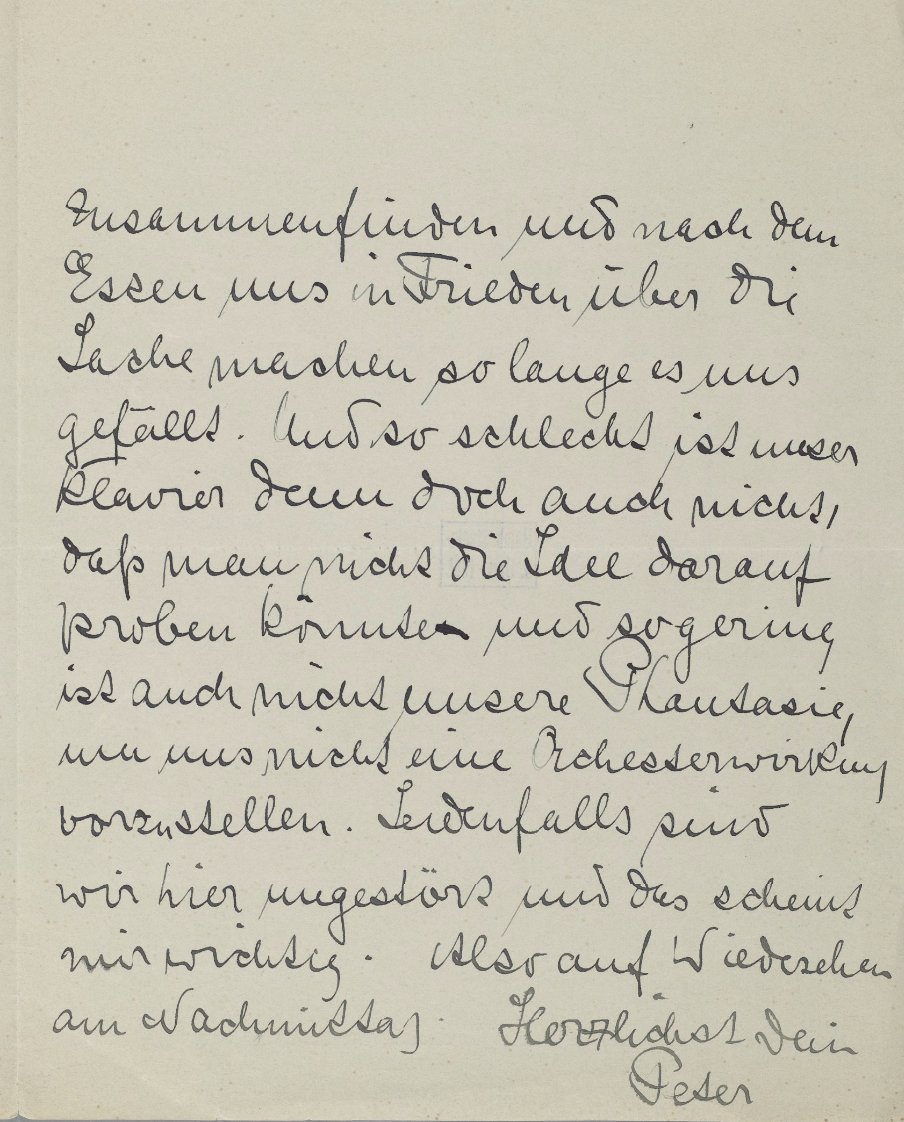 zusammenfinden und nach dem
Essen uns in Frieden über die
Sache machen so lange es uns
gefällt. Und so schlecht ist unser
Klavier denn doch auch nicht,
daß man nicht die Idee darauf
proben könnte und so gering
ist auch nicht unsere Phantasie,
um uns nicht eine Orchesterwirkung
vorzustellen. Jedenfalls sind
wir hier ungestört und das scheint
mir wichtig. Also auf Wiedersehen
am Nachmittag. Herzlichst Dein
Peter